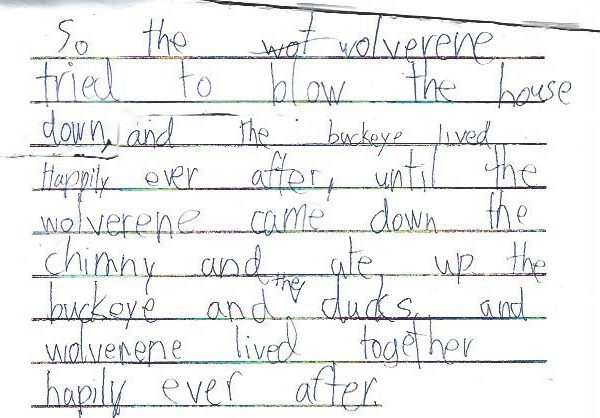 So the wot wolverene
tried to blow the house
down, and the buckeye lived
Happily ever after, until the
wolverene came down the
chimny and ate up the
buckeye and the ducks and
wolverene lived together
hapily ever after.